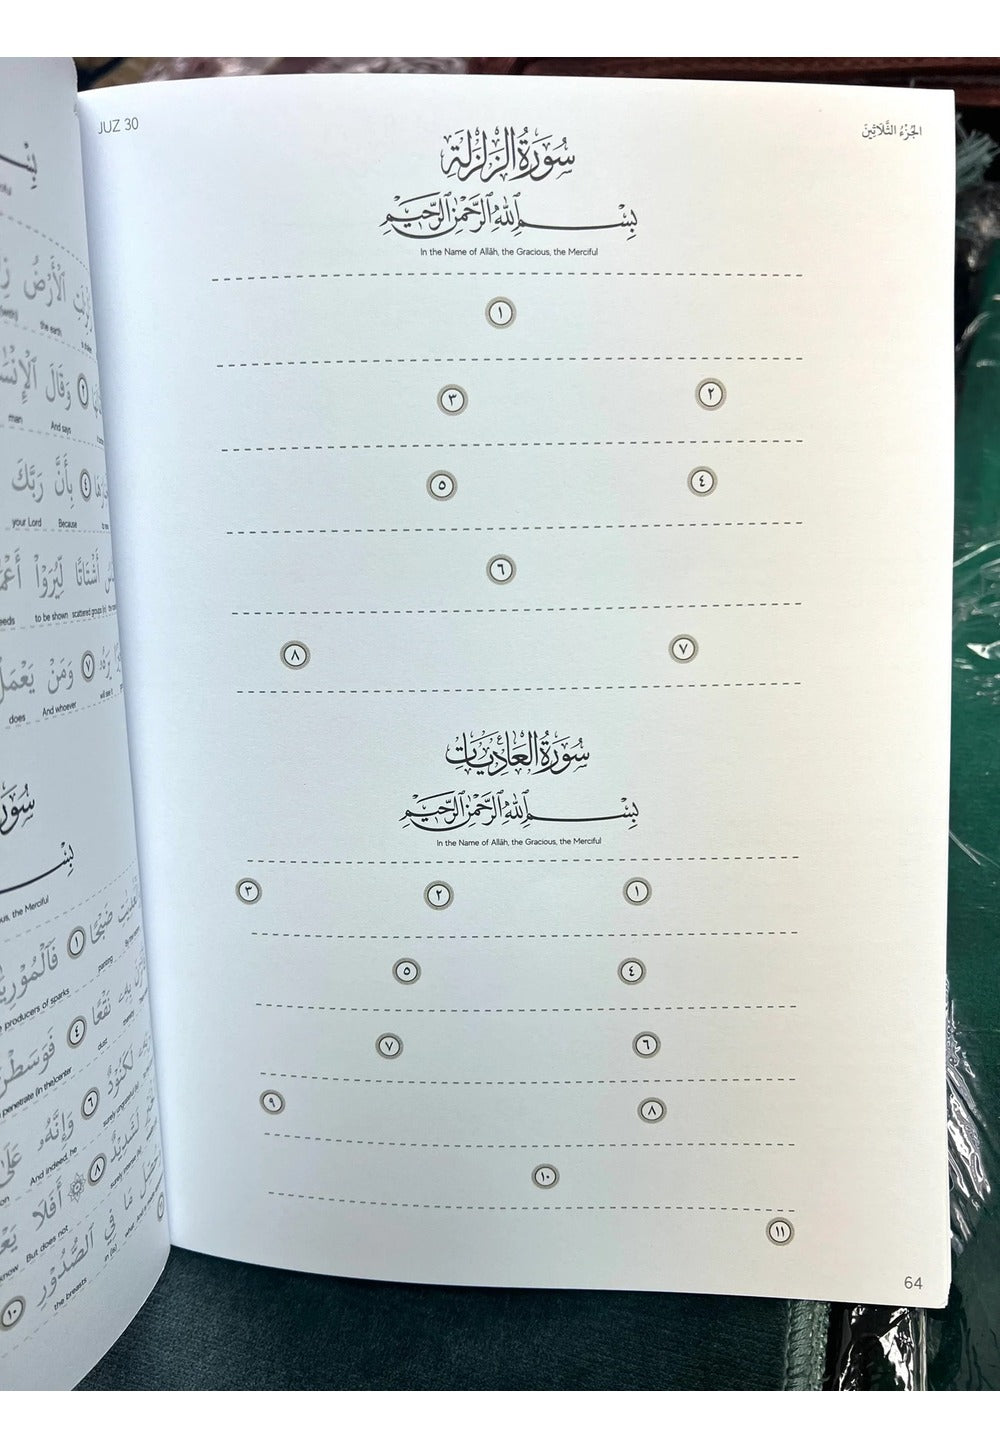 JUZ 30
الجُزْءُ الثَّلَاثِينَ
سُورَةُ الزَّلْزَلَةِ
بِسْمِ ٱللَّهِ ٱلرَّحْمَٰنِ ٱلرَّحِيمِ
In the Name of Allâh, the Gracious, the Merciful
١
٢ ٣
٤ ٥
٦
٧ ٨
سُورَةُ العَادِيَات
بِسْمِ ٱللَّهِ ٱلرَّحْمَٰنِ ٱلرَّحِيمِ
In the Name of Allâh, the Gracious, the Merciful
١ ٢ ٣
٤ ٥
٦ ٧
٨ ٩
١٠
١١
64
ٱلْأَرْضُ
the earth
٢ وَقَالَ
And says
man
٤ بِأَنَّ رَبَّكَ
Because your Lord
أَشْتَاتًا لِّيُرَوْا۟
scattered groups to be shown
يَرَهُۥ ٧ وَمَنْ يَعْمَلْ
will see it And whoever does
بِسْ
the Merciful
ضَبْحًا ١
panting
producers of sparks
نَقْعًا ٤
dust
penetrate (in the) center
لَكَنُودٌ ٦ وَإِنَّهُۥ عَلَىٰ
surely ungrateful And indeed, he
لَشَدِيدٌ ٨ أَفَلَا
But does not know
مَا فِي ٱلصُّدُورِ ١٠
the breasts